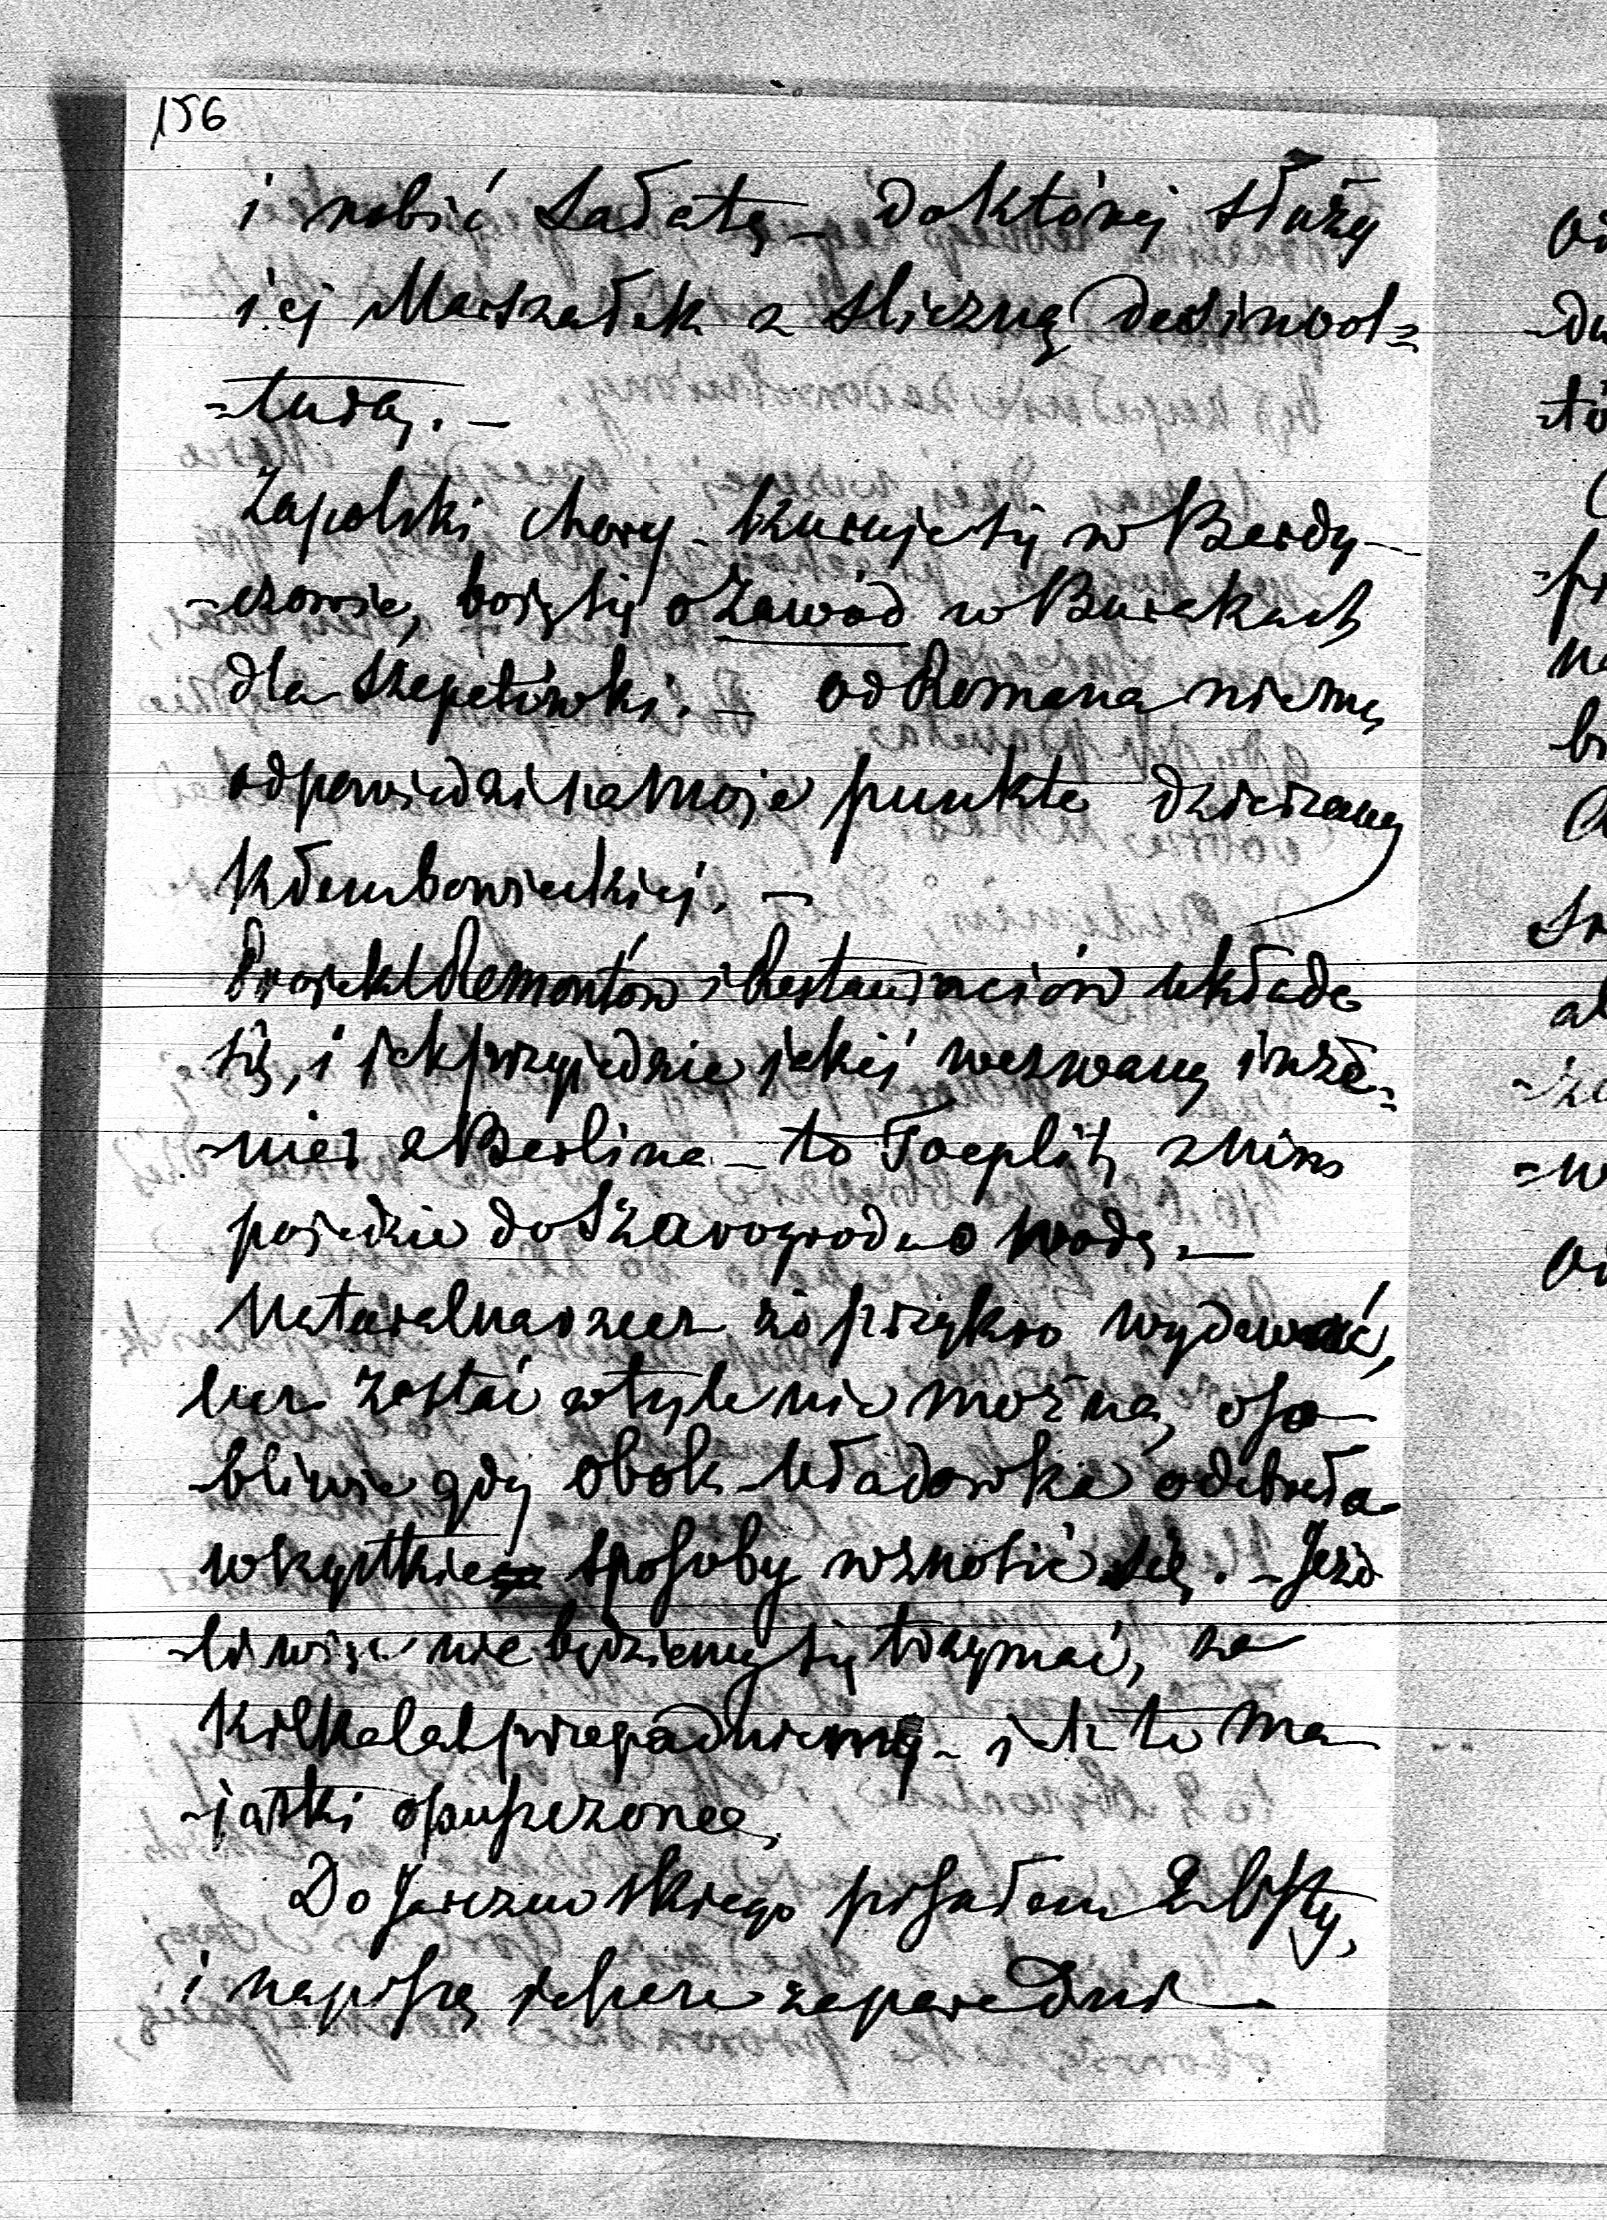 156
i robić Sałatę – do której służy
iej Marszałek z śliczną desinvol-
-turą. –
Zapolski chory – kuruje się w Berdy-
-czowie, boię się o Zawód w Burakach
dla Szepetówki. – od Romana niemą
odpowiedzi na moje punkta dzierżawy
Kłembowieckiej. –
Projekt Remontów i Restauraciów układa
się, i jak przyjedzie jakiś wezwany inże-
-nier z Berlina – to Toeplitz z nim
pojedzie do Szarogrodu o wodę –
Naturalna rzecz że przykro wydawać,
lecz zostać w tyle nie można, oso-
-bliwie gdy obok Uładowka odebrała
wszystkie sposoby wznosić się. – Jeże
-li więc nie będziemy się trzymać, za
kilka lat przepadniemy – i te ma
-jątki opuszczone,
Do Jaroszewskiego pisałem 2 listy,
i napiszę jeszcze